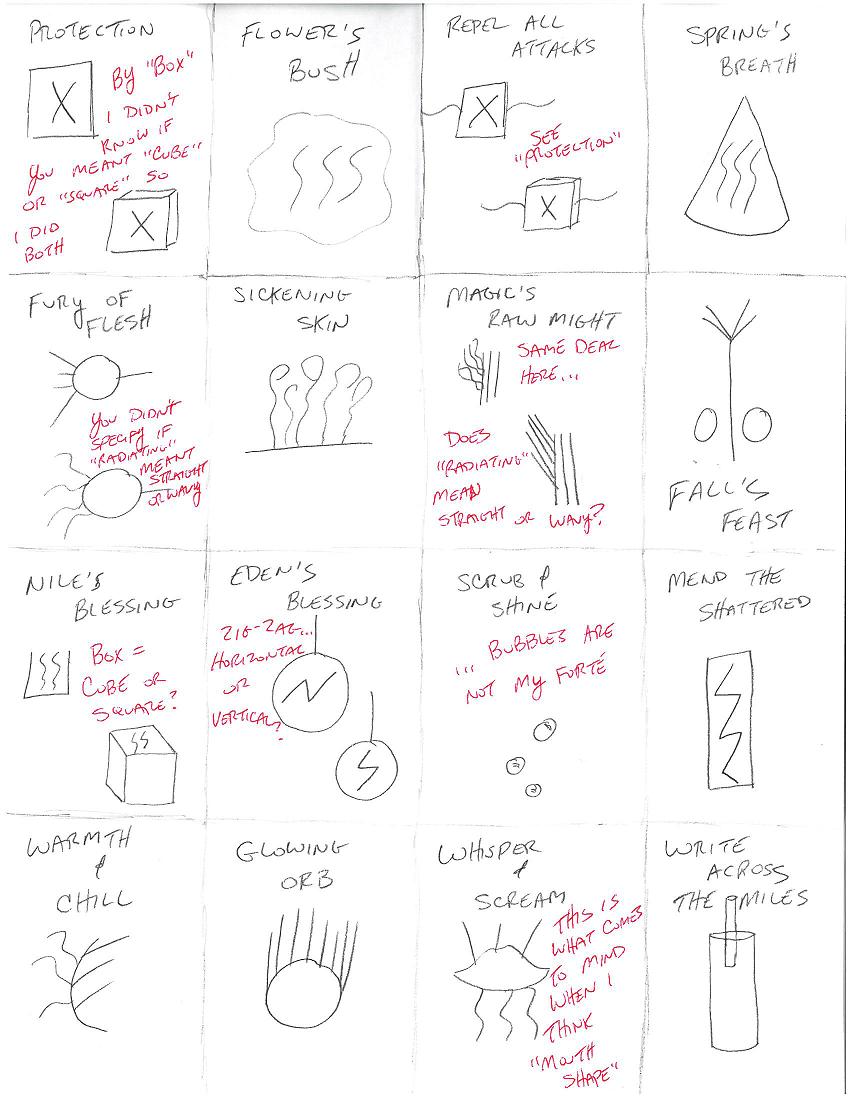 PROTECTION
BY "BOX"
I DIDN'T
KNOW IF
YOU MEANT "CUBE"
OR "SQUARE" SO
I DID
BOTH
X
X
FLOWER'S
BUSH
REPEL ALL
ATTACKS
X
SEE
"PROTECTION"
X
SPRING'S
BREATH
FURY OF
FLESH
YOU DIDN'T
SPECIFY IF
"RADIATING"
MEANT
STRAIGHT
OR WAVY
SICKENING
SKIN
MAGIC'S
RAW MIGHT
SAME DEAL
HERE...
DOES
"RADIATING"
MEAN
STRAIGHT OR WAVY?
FALL'S
FEAST
NILE'S
BLESSING
BOX =
CUBE OR
SQUARE?
EDEN'S
BLESSING
ZIG-ZAG...
HORIZONTAL
OR
VERTICAL?
SCRUB &
SHINE
... BUBBLES ARE
NOT MY FORTÉ
MEND THE
SHATTERED
WARMTH
&
CHILL
GLOWING
ORB
WHISPER
&
SCREAM
THIS IS
WHAT COMES
TO MIND
WHEN I
THINK
"MOUTH
SHAPE"
WRITE
ACROSS
THE MILES